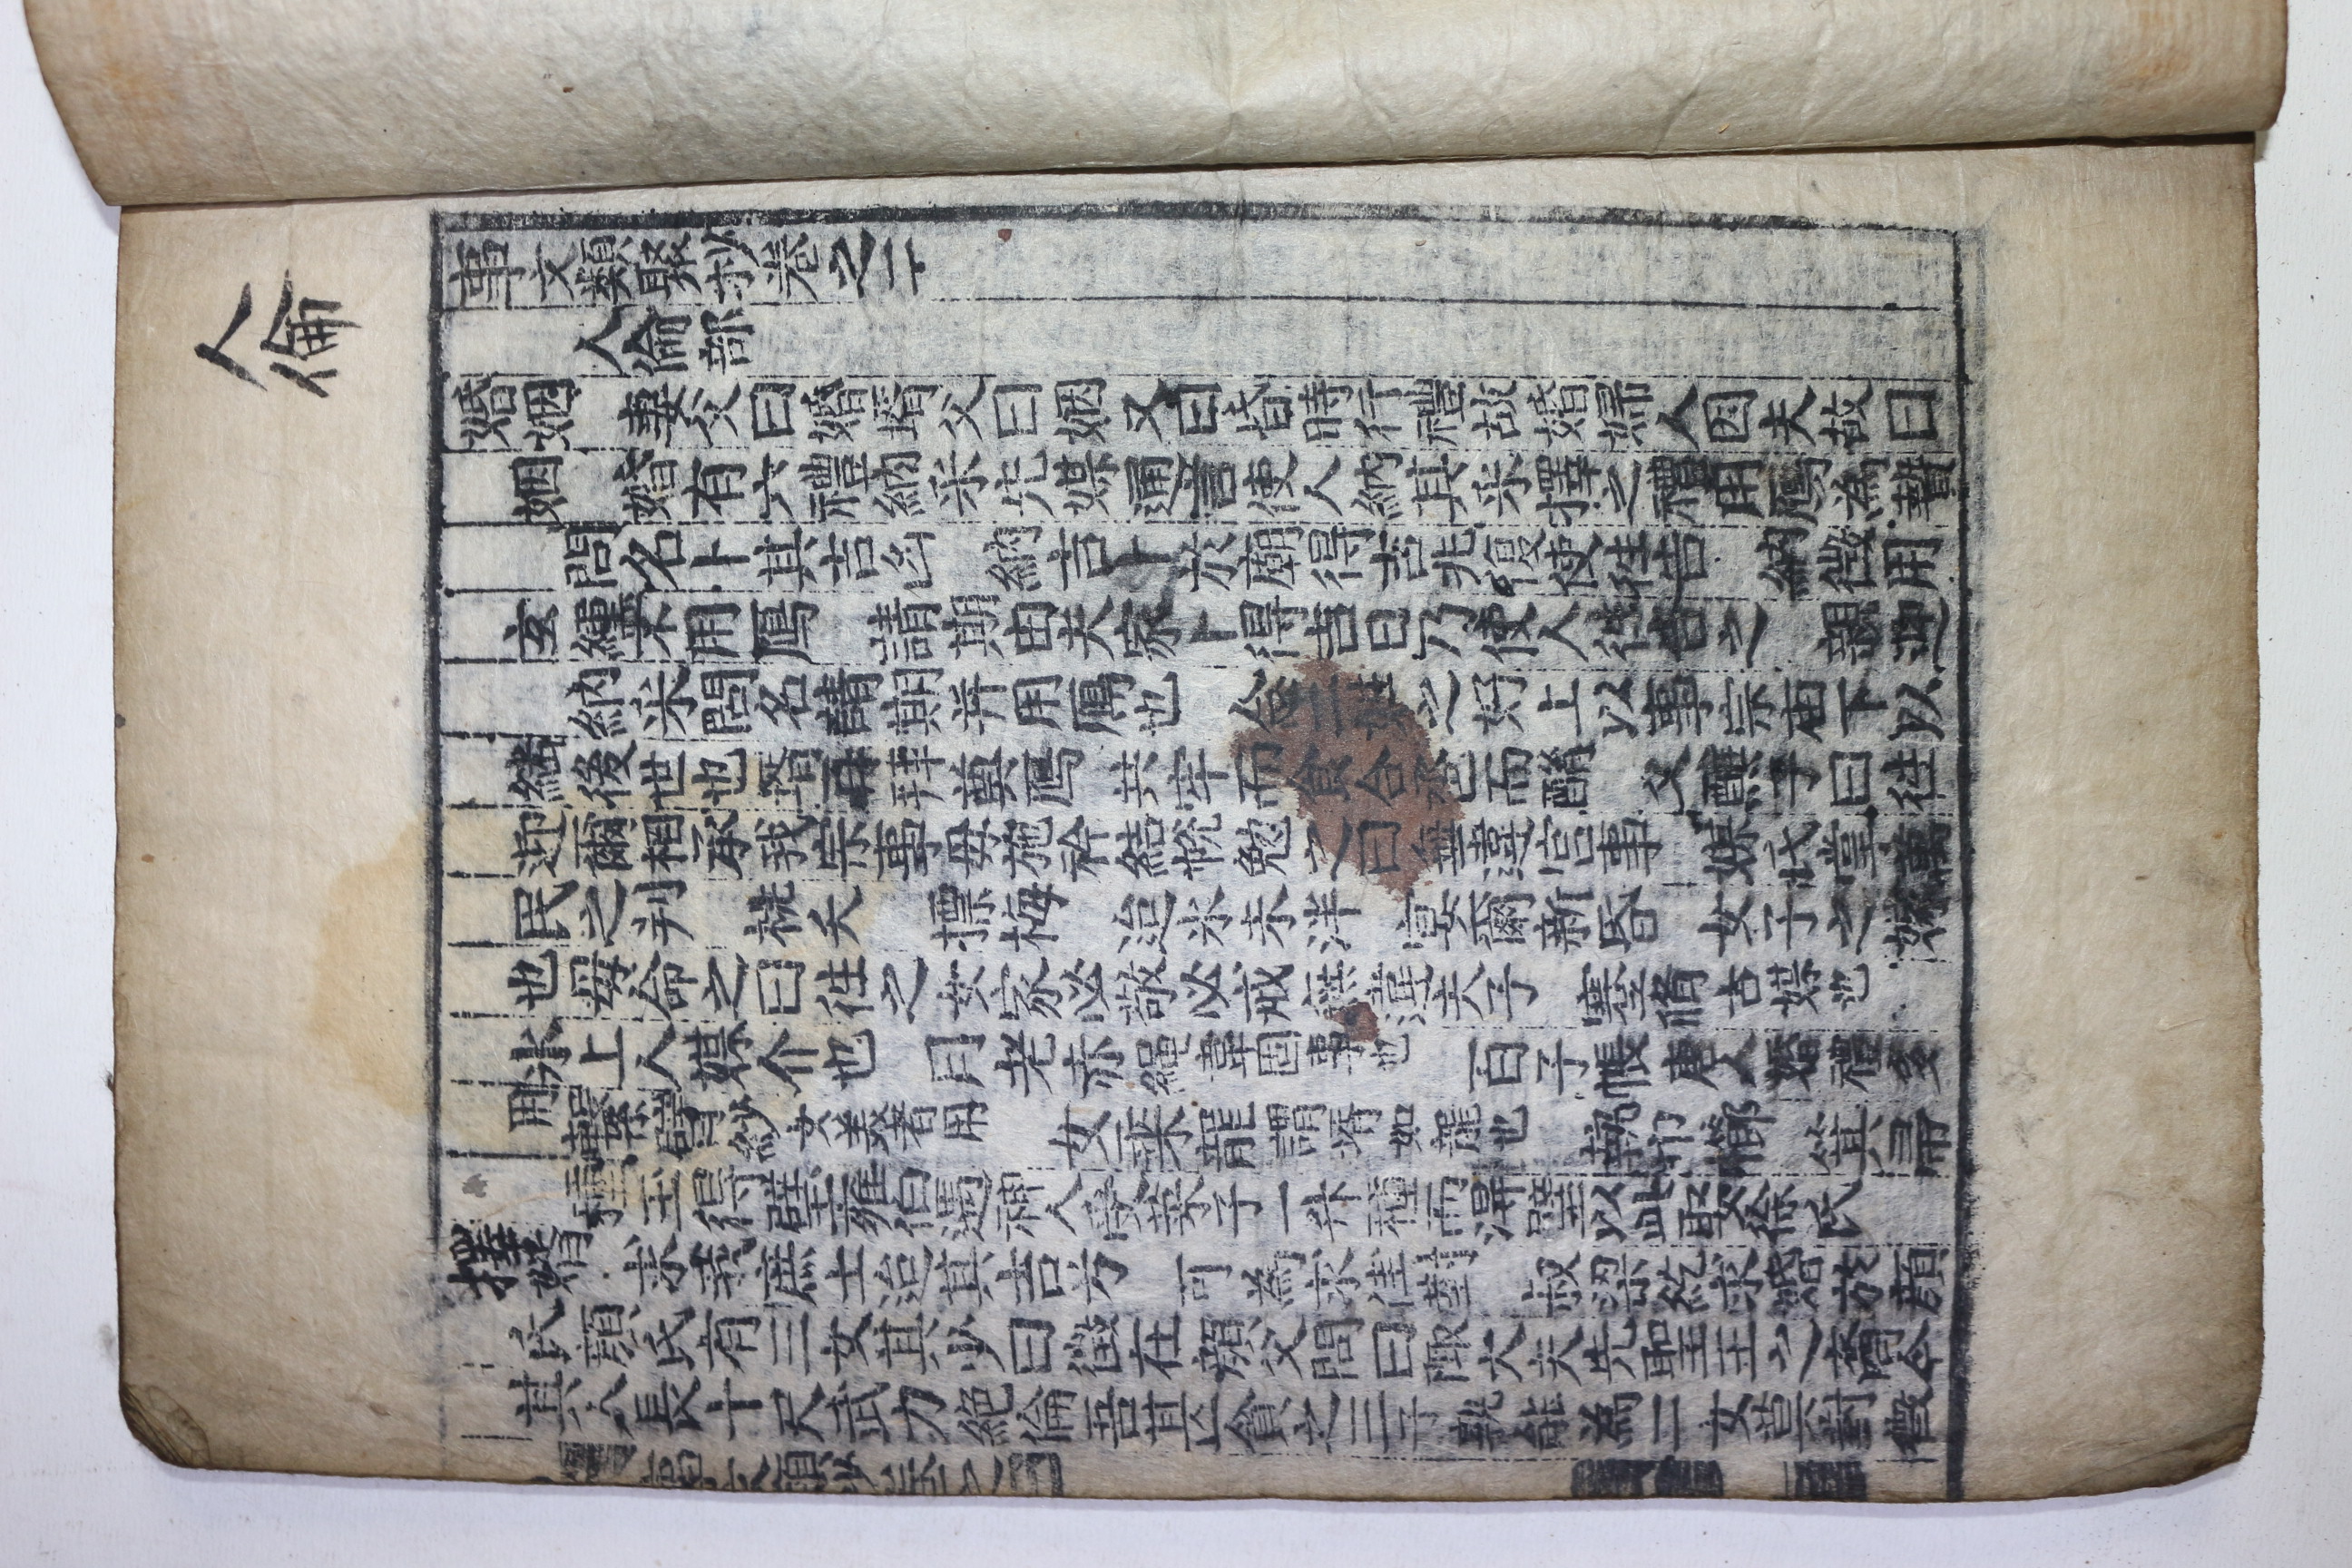 人倫
事文類聚抄卷之二
人倫部
婚姻 妻父曰婚壻父曰姻又曰昏時行禮故婚婦人因夫故曰
姻 婚有六禮納采先媒通言使人納其采擇之禮用鴈為贄
問名卜其吉凶 納吉卜於廟得吉兆復使徃告 納徵用
玄纁不用鴈 請期由夫家卜得吉日乃使人徃告之 親迎
納采問名請期并用鴈也 合二姓之好上以事宗庙下以
継後世也壻再拜奠鴈 共牢而食合巹而酳 父醮子曰徃
迎爾相承我宗事毋施衿結帨勉之曰無違宫事 媒氏掌萬
民之判 桃夭 摽梅 迨氷未泮 宴爾新昏 女子之嫁
也毋命之曰徃之女家必敬必戒無違夫子 蹇脩古媒也
氷上人媒介也 月老赤縄韋固事也 百子帳唐人婚禮多
用 繫臂紗女美者用 女乘龍謂壻如龍也 執巾櫛 箕帚
種玉得璧雍伯遇神人受菜子一升種而得璧以此娶徐氏
擇婿 求我庶士迨其吉兮 可為求佳對 叔梁紇求婚於顔
氏顔氏有三女其少曰徵在顔父問曰陬大夫先聖王之裔今
其人長十尺武力絶倫吾甚貪之三子孰能為一女莫對徵
類抄卷之